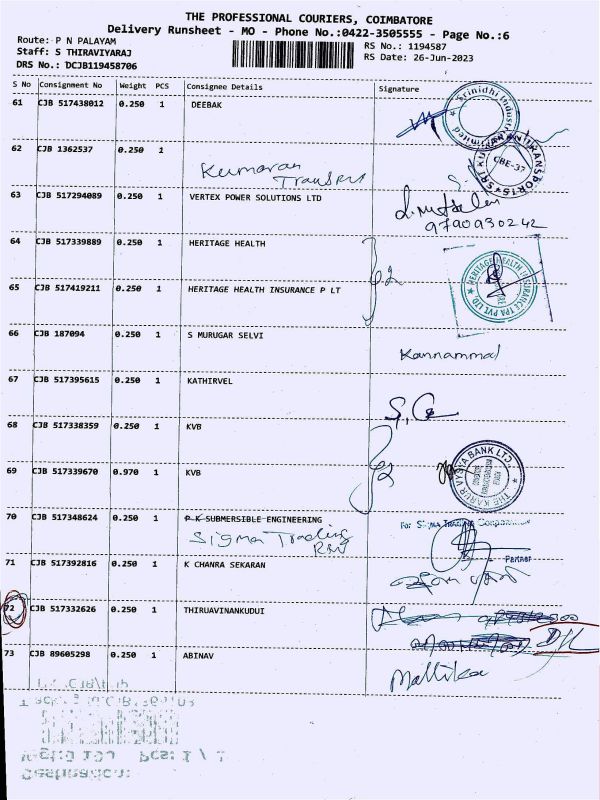 THE PROFESSIONAL COURIERS, COIMBATORE
Delivery Runsheet - MO - Phone No.:0422-3505555 - Page No.:6
Route: P N PALAYAM
Staff: S THIRAVIYARAJ
DRS No.: DCJB119458706
RS No.: 1194587
RS Date: 26-Jun-2023
S No Consignment No Weight PCS Consignee Details Signature
61 CJB 517438012 0.250 1 DEEBAK
Srinidhi
62 CJB 1362537 0.250 1
Kumaran
Transport
SRI KUMARAN TRANSPORTS
CBE-37
63 CJB 517294089 0.250 1 VERTEX POWER SOLUTIONS LTD
9790930242
64 CJB 517339889 0.250 1 HERITAGE HEALTH
65 CJB 517419211 0.250 1 HERITAGE HEALTH INSURANCE P LT
HERITAGE HEALTH INSURANCE TPA PVT LTD
66 CJB 187094 0.250 1 S MURUGAR SELVI
Kannammal
67 CJB 517395615 0.250 1 KATHIRVEL
68 CJB 517338359 0.250 1 KVB
69 CJB 517339670 0.970 1 KVB
THE KARUR VYSYA BANK LTD.
70 CJB 517348624 0.250 1 P K SUBMERSIBLE ENGINEERING
Sigma Trading
For Sigma Trading Corporation
Partner
71 CJB 517392816 0.250 1 K CHANRA SEKARAN
72 CJB 517332626 0.250 1 THIRUVINANKUDUI
73 CJB 89605298 0.250 1 ABINAV
Mallika
Pcs: 1 / 1
Destination: